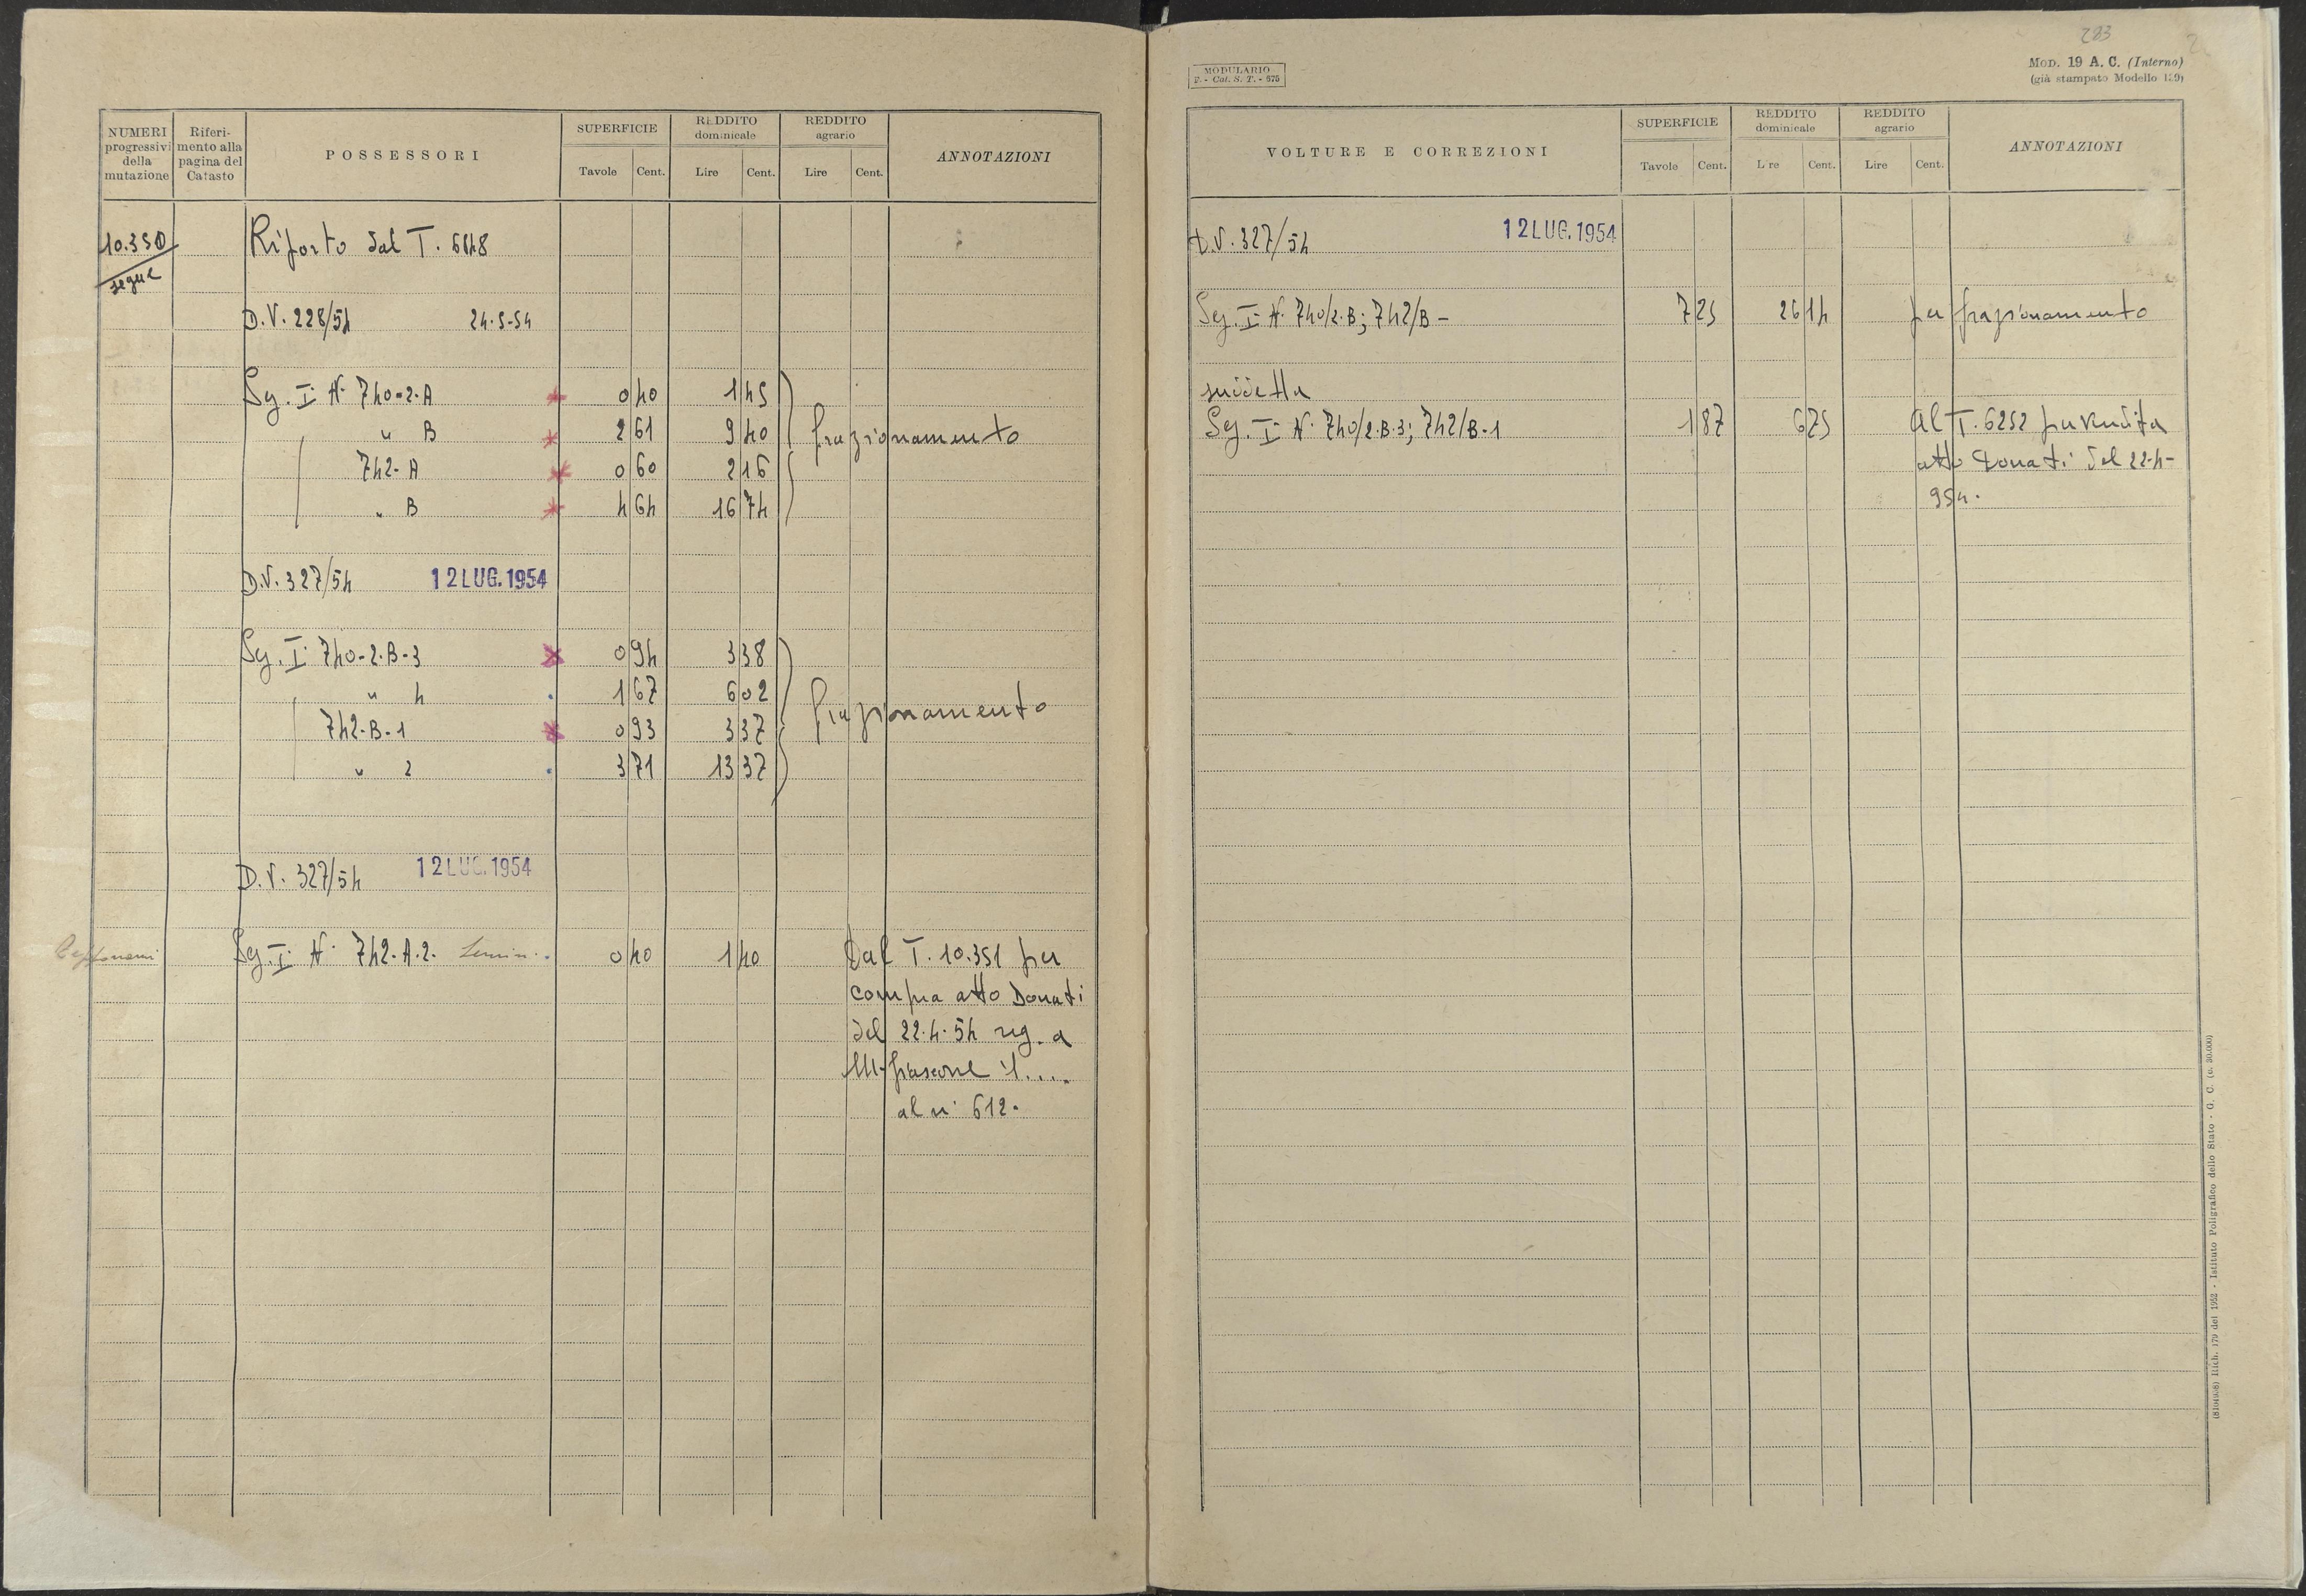 NUMERI progressivi della mutazione
Riferimento alla pagina del Catasto
POSSESSORI
SUPERFICIE
Tavole Cent.
REDDITO dominicale
Lire Cent.
REDDITO agrario
Lire Cent.
ANNOTAZIONI
10.350 Riporto dal T. 6648
segue
D.V. 228/54 24-5-54
Sez. I N. 740-2-A 0 40 1 45
" B 2 61 9 40 frazionamento
742-A 0 60 2 16
" B 4 64 16 74
D.V. 327/54 12 LUG. 1954
Sez. I 740-2-B-3 0 94 3 38
" 4 1 67 6 02
742-B-1 0 93 3 37 frazionamento
" 2 3 71 13 37
D.V. 327/54 12 LUG. 1954
Sez. I N. 742-A-2 0 40 1 40 Dal T. 10.351 per
compra atto Donati
del 22-4-54 reg. a
M.fiascone il ....
al n. 612.
283
MODULARIO
F. - Cat. S. T. - 675
MOD. 19 A. C. (Interno)
(già stampato Modello 129)
VOLTURE E CORREZIONI
SUPERFICIE
Tavole Cent.
REDDITO dominicale
Lire Cent.
REDDITO agrario
Lire Cent.
ANNOTAZIONI
D.V. 327/54 12 LUG. 1954
Sez. I N. 740/2-B; 742/B - 7 25 26 14 per frazionamento
suddetta
Sez. I N. 740/2-B-3; 742/B-1 1 87 6 75 Al T. 6252 per vendita
atto Donati del 22-4-
954.
Istituto Poligrafico dello Stato - G. C.